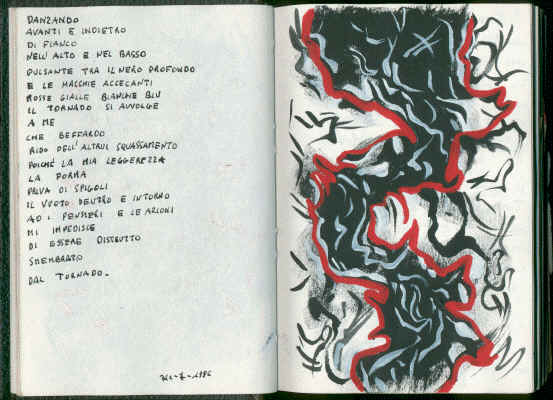 DANZANDO
AVANTI E INDIETRO
DI FIANCO
NELL'ALTO E NEL BASSO
PULSANTE TRA IL NERO PROFONDO
E LE MACCHIE ACCECANTI
ROSSE GIALLE BIANCHE BLU
IL TORNADO SI AVVOLGE
A ME
CHE BEFFARDO
RIDO DELL'ALTRUI SQUASSAMENTO
POICHÉ LA MIA LEGGEREZZA
LA FORMA
PRIVA DI SPIGOLI
IL VUOTO DENTRO E INTORNO
AD I PENSIERI E LE AZIONI
MI IMPEDISCE
DI ESSERE DISTRUTTO
SMEMBRATO
DAL TORNADO.
1986